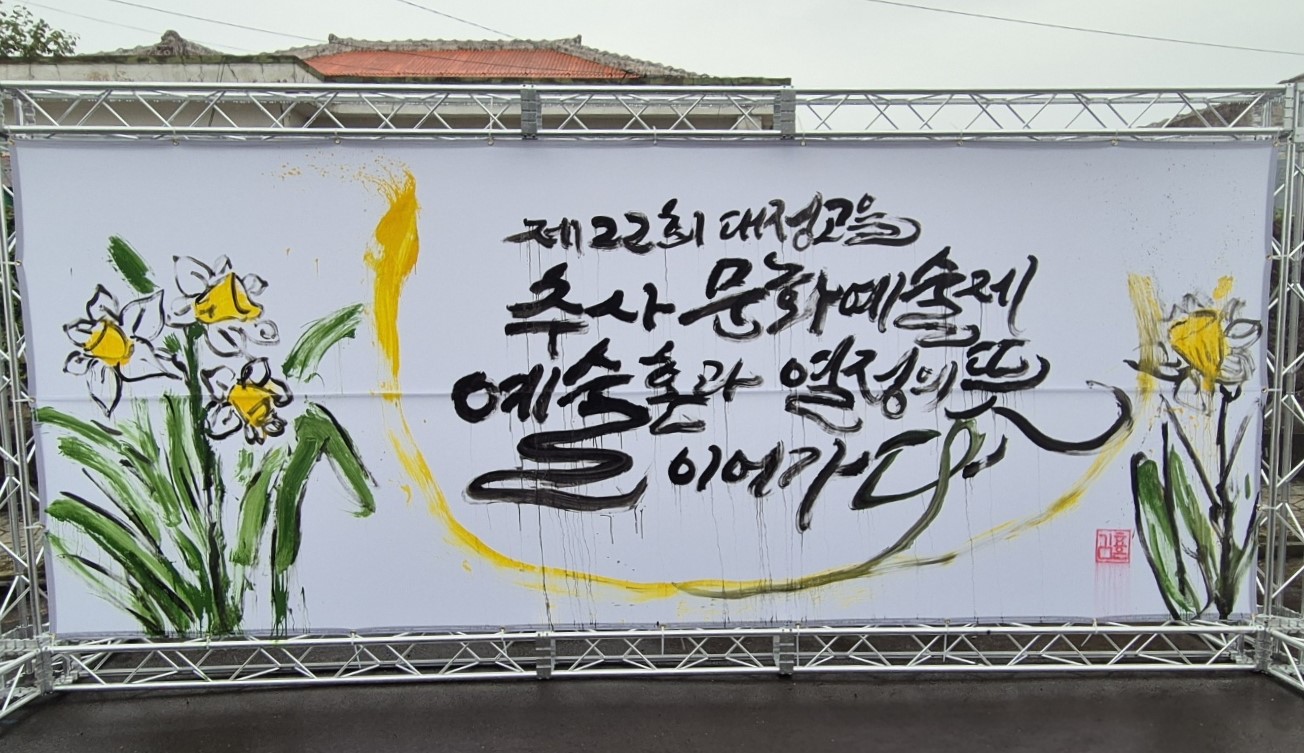 제22회 대정고을
추사 문화예술제
예술혼과 열정의 뜻
이어가다